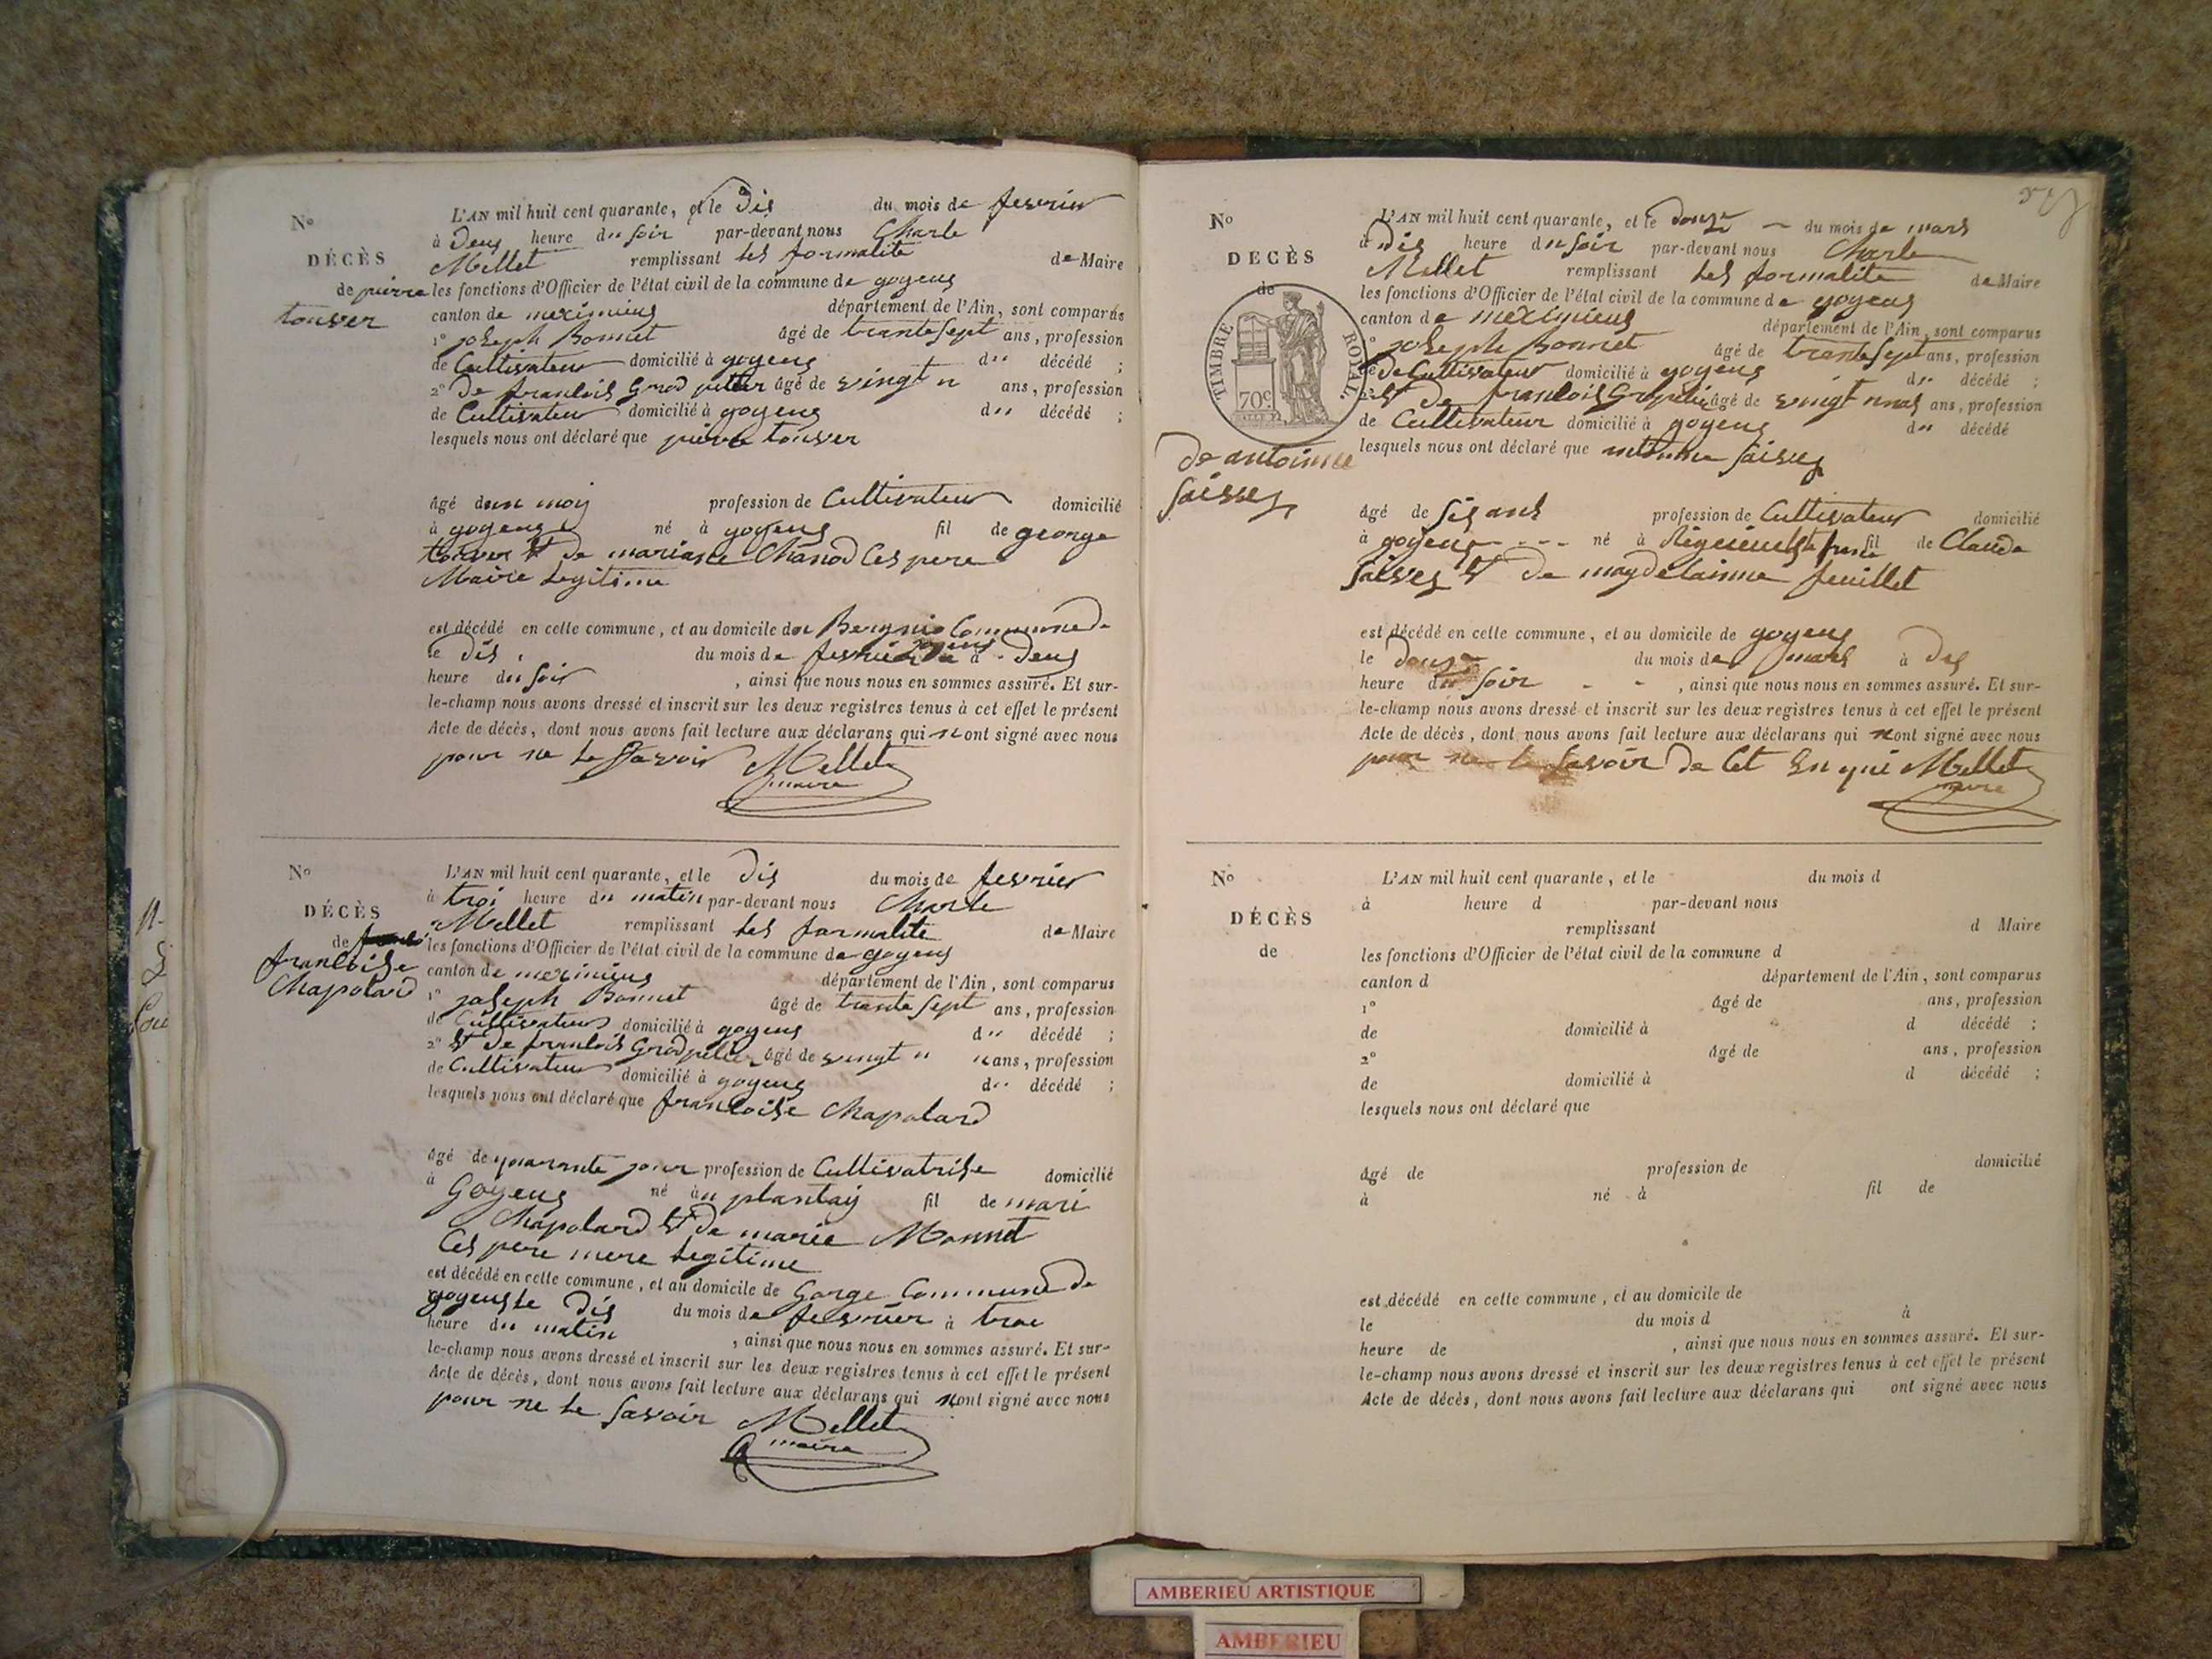 No
DÉCÈS
de pierre
touver
L'AN mil huit cent quarante, et le dis du mois de fevrier
à deus heure du soir par-devant nous Charle
Mellet remplissant les formalité de Maire
les fonctions d'Officier de l'état civil de la commune de goyens
canton de meximieus département de l'Ain, sont comparus
1° joseph Bonnet âgé de trante sept ans, profession
de Cultivateur domicilié à goyens du décédé ;
2° de franlois âgé de vingt ans, profession
de Cultivateur domicilié à goyens du décédé ;
lesquels nous ont déclaré que pierre touver
âgé dun mois profession de Cultivateur domicilié
à goyens né à goyens fil de george
touver et de marianne Chanod Ces pere
Maire legitime
est décédé en cette commune, et au domicile de Commune de
goyens
le dis du mois de fevrier à deus
heure du soir , ainsi que nous nous en sommes assuré. Et sur-
le-champ nous avons dressé et inscrit sur les deux registres tenus à cet effet le présent
Acte de décès, dont nous avons fait lecture aux déclarans qui nont signé avec nous
pour ne le savoir Mellet
maire
No
DÉCÈS
de
franloise
Chapolard
L'AN mil huit cent quarante, et le dis du mois de fevrier
à troi heure du matin par-devant nous Charle
Mellet remplissant les formalité de Maire
les fonctions d'Officier de l'état civil de la commune de goyens
canton de meximieus département de l'Ain, sont comparus
1° joseph Bonnet âgé de trante sept ans, profession
de Cultivateur domicilié à goyens du décédé ;
2° et de franlois âgé de vingt ans, profession
de Cultivateur domicilié à goyens du décédé ;
lesquels nous ont déclaré que franloise Chapolard
âgé de quarante jour profession de Cultivatrise domicilié
à Goyens né au plantay fil de mari
Chapolard et de marie Monnet
Ces pere mere legitime
est décédé en cette commune, et au domicile de Gorge Commune de
goyens le dis du mois de fevrier à troi
heure du matin , ainsi que nous nous en sommes assuré. Et sur-
le-champ nous avons dressé et inscrit sur les deux registres tenus à cet effet le présent
Acte de décès, dont nous avons fait lecture aux déclarans qui nont signé avec nous
pour ne le savoir Mellet
maire
No
DÉCÈS
de
TIMBRE ROYAL.
70c
de antoinne
saisses
L'AN mil huit cent quarante, et le douze du mois de mars
à dis heure du soir par-devant nous Charle
Mellet remplissant les formalite de Maire
les fonctions d'Officier de l'état civil de la commune de goyens
canton de meximieus département de l'Ain, sont comparus
1° joseph Bonnet âgé de trante sept ans, profession
de Cultivateur domicilié à goyens du décédé ;
2° et de franlois âgé de vingt ans, profession
de Cultivateur domicilié à goyens du décédé
lesquels nous ont déclaré que antoinne saises
âgé de sis ans profession de Cultivateur domicilié
à goyens né à fil de Claude
saises et de magdelainne feuillet
est décédé en cette commune, et au domicile de goyens
le douze du mois de mars à dis
heure du soir , ainsi que nous nous en sommes assuré. Et sur-
le-champ nous avons dressé et inscrit sur les deux registres tenus à cet effet le présent
Acte de décès, dont nous avons fait lecture aux déclarans qui nont signé avec nous
pour ne le savoir de Mellet
maire
No
DÉCÈS
de
L'AN mil huit cent quarante, et le du mois d
à heure d par-devant nous
remplissant d Maire
les fonctions d'Officier de l'état civil de la commune d
canton d département de l'Ain, sont comparus
1° âgé de ans, profession
de domicilié à d décédé ;
2° âgé de ans, profession
de domicilié à d décédé ;
lesquels nous ont déclaré que
âgé de profession de domicilié
à né à fil de
est décédé en cette commune, et au domicile de
le du mois d à
heure de , ainsi que nous nous en sommes assuré. Et sur-
le-champ nous avons dressé et inscrit sur les deux registres tenus à cet effet le présent
Acte de décès, dont nous avons fait lecture aux déclarans qui ont signé avec nous
AMBERIEU ARTISTIQUE
AMBERIEU